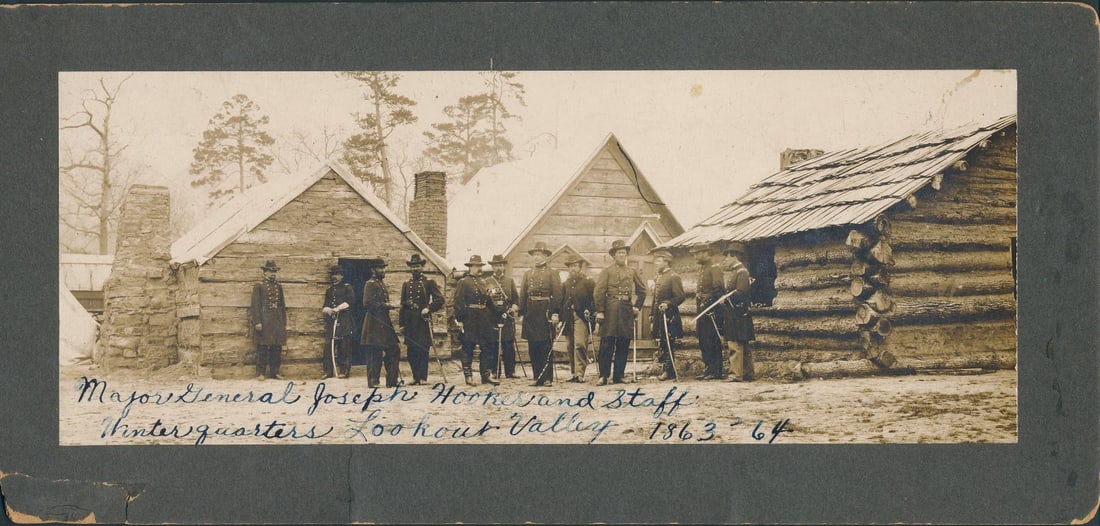 Major General Joseph Hooker and Staff
Winter quarters Lookout Valley 1863-64